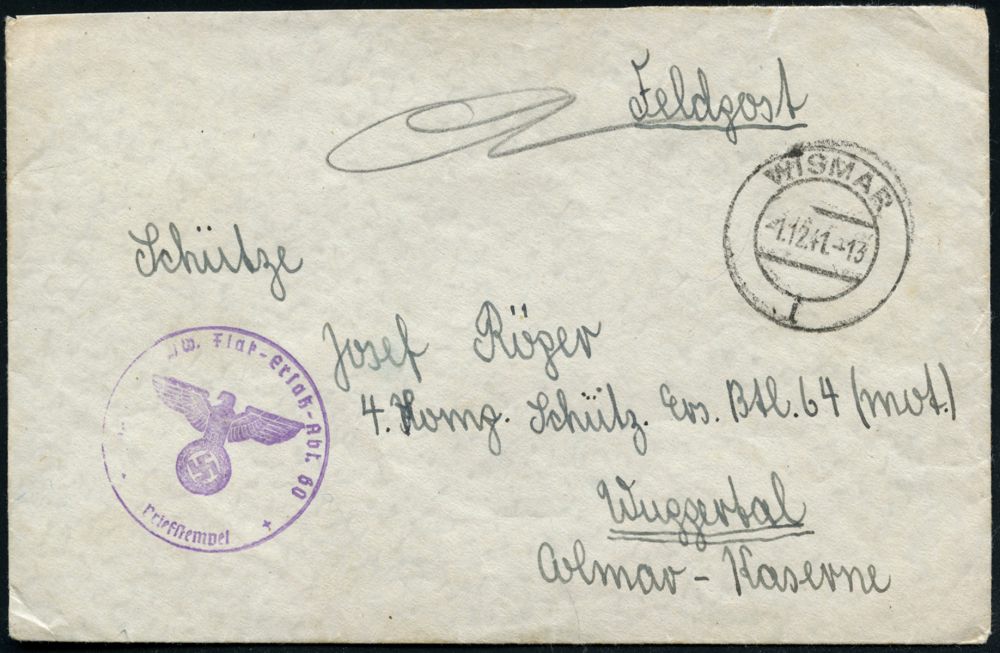 Feldpost
WISMAR
1.12.41.-13
1
Schütze
Josef Röger
4. Komp. Schütz. Ers. Btl. 64 (mot.)
Wuppertal
Colmar-Kaserne
Flak-Ersatz-Abt. 60
Briefstempel